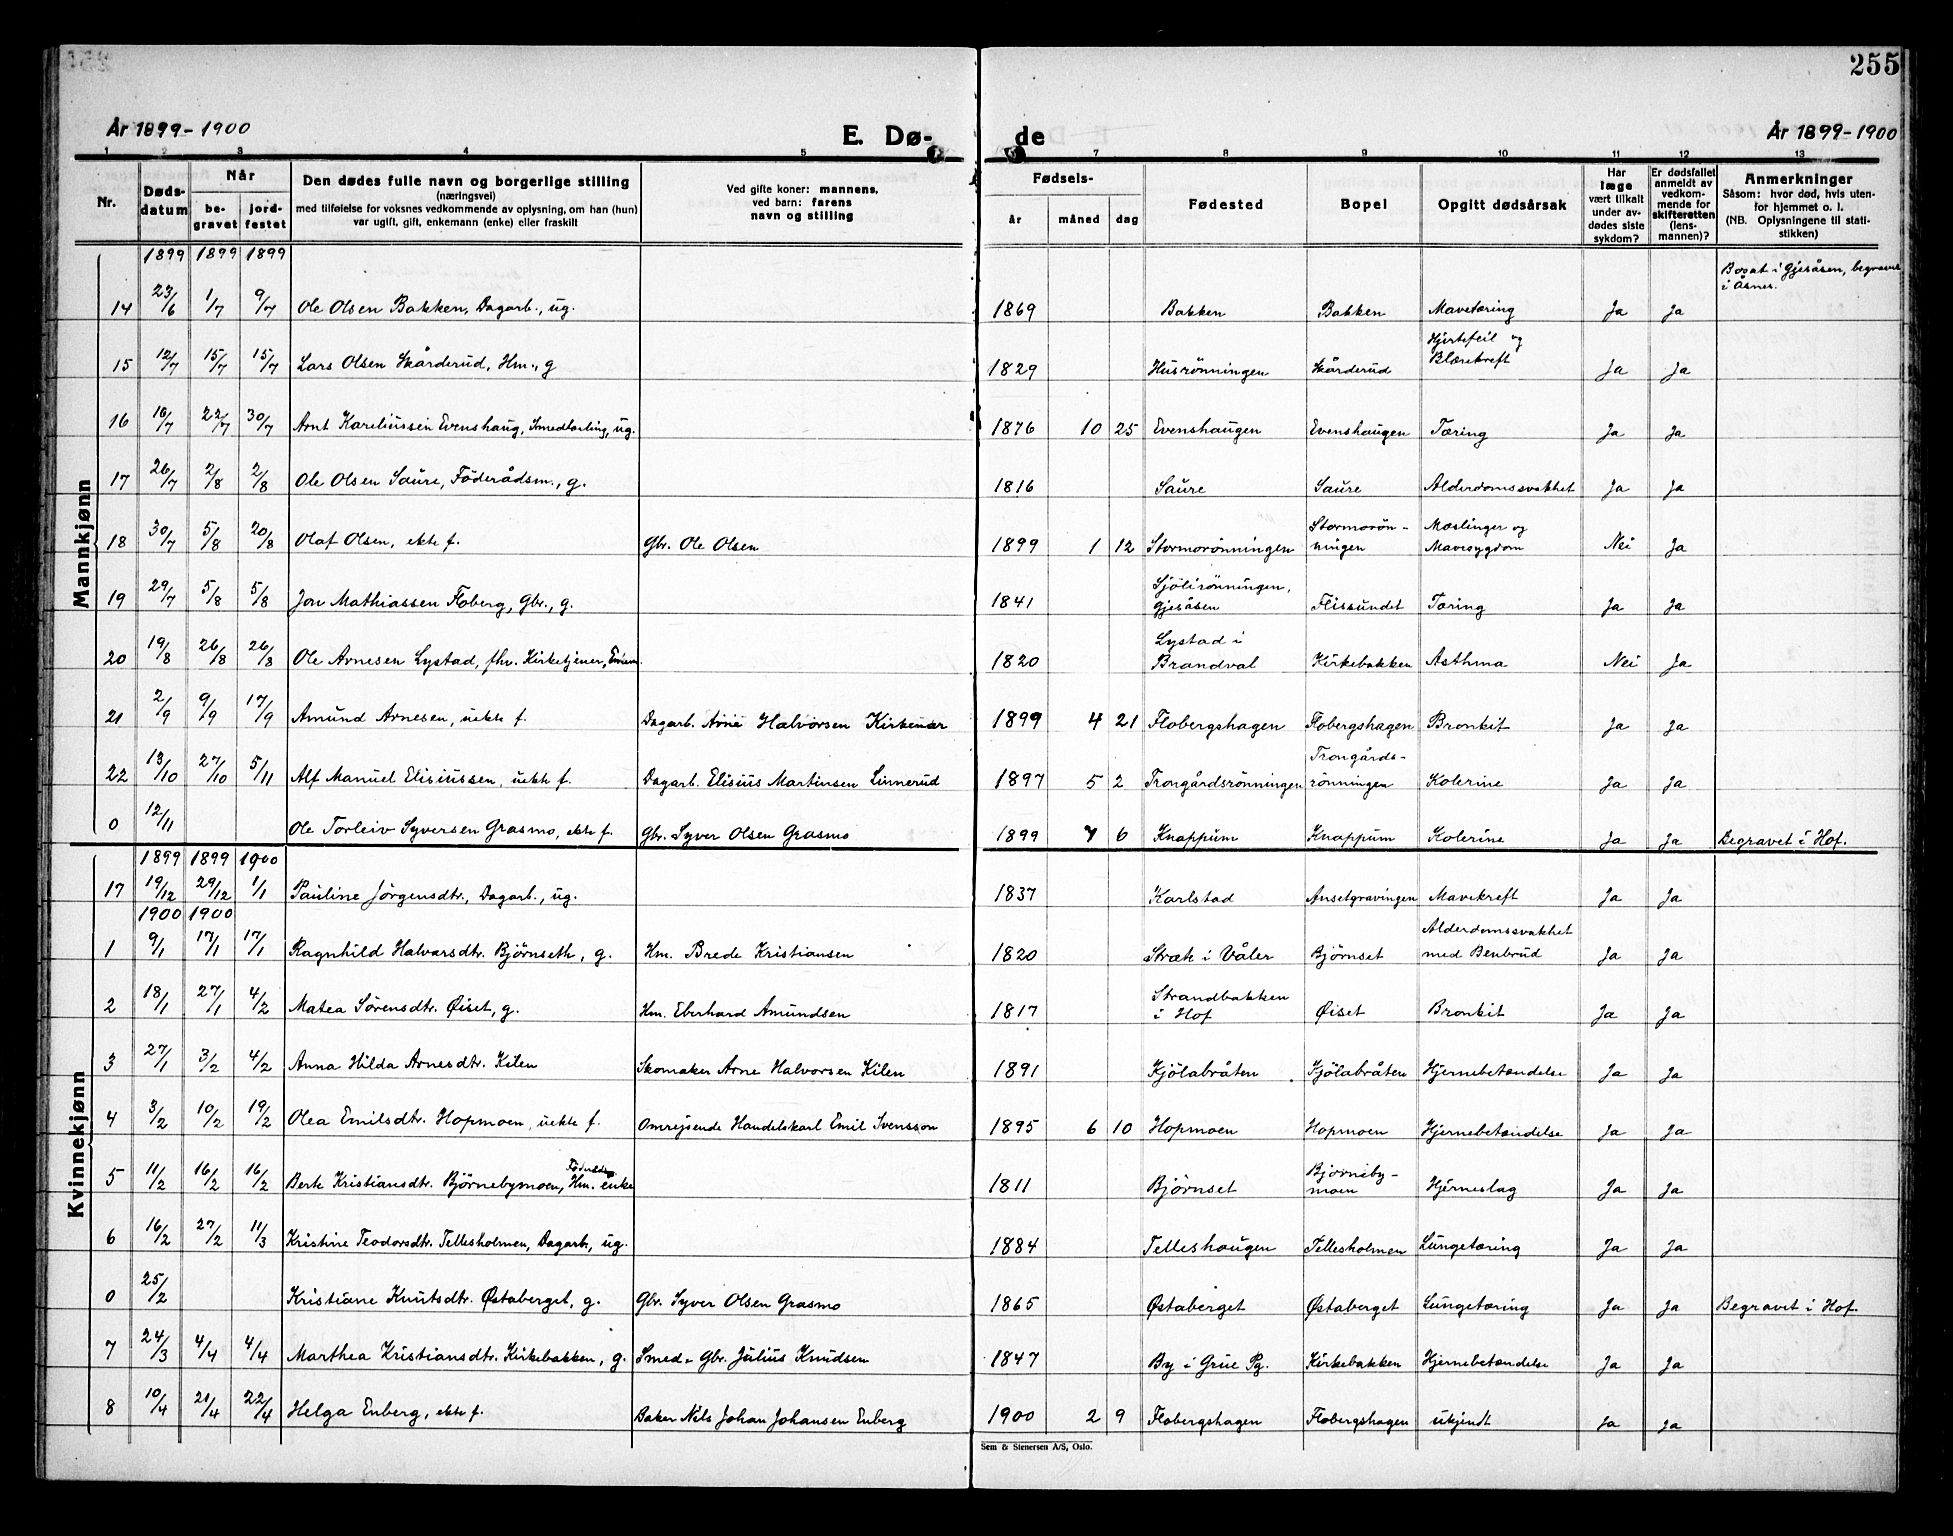 255
År 1899-1900 E. Dø- de År 1899-1900
1 2 3 4 5 7 8 9 10 11 12 13
Nr. Døds-datum Når begravet jordfestet Den dødes fulle navn og borgerlige stilling (næringsvei) med tilføielse for voksnes vedkommende av oplysning, om han (hun) var ugift, gift, enkemann (enke) eller fraskilt Ved gifte koner: mannens, ved barn: farens navn og stilling Fødsels- år måned dag Fødested Bopel Opgitt dødsårsak Har læge vært tilkalt under avdødes siste sykdom? Er dødsfallet anmeldt av vedkommende for skifteretten (lensmannen)? Anmerkninger Såsom: hvor død, hvis utenfor hjemmet o. l. (NB. Oplysningene til statistikken)
Mannkjønn
1899 1899 1899
14 23/6 1/7 9/7 Ole Olsen Bakken, Dagarb., ug. 1869 Bakken Bakken Mavetæring Ja Ja Bosat i Gjesåsen, begravet i Åsnes.
15 12/7 15/7 15/7 Lars Olsen Skårderud, Hm., g 1829 Husrönningen Skårderud Hjertefeil og Blærekreft Ja Ja
16 16/7 22/7 30/7 Arnt Kareliussen Evenshaug, Smedlærling, ug. 1876 10 25 Evenshaugen Evenshaugen Tæring Ja Ja
17 26/7 2/8 2/8 Ole Olsen Saure, Föderådsm., g. 1816 Saure Saure Alderdomssvakhet Ja Ja
18 30/7 5/8 20/8 Olaf Olsen, ekte f. Gbr. Ole Olsen 1899 1 12 Stormorönningen Stormorönningen Mæslinger og Mavesygdom Nei Ja
19 29/7 5/8 5/8 Jon Mathiassen Floberg, Gbr., g. 1841 Sjölirönningen, Gjesåsen Flissundet Tæring Ja Ja
20 19/8 26/8 26/8 Ole Arnesen Lystad, fhv. Kirketjener, Enkem. 1820 Lystad i Brandval Kirkebakken Asthma Nei Ja
21 2/9 9/9 17/9 Amund Arnesen, uekte f. Dagarb. Arne Halvorsen Kirkenær 1899 4 21 Flobergshagen Flobergshagen Bronkit Ja Ja
22 13/10 27/10 5/11 Alf Manuel Elisiussen, uekte f. Dagarb. Elisius Martinsen Linnerud 1897 5 2 Trongårdsrönningen Trongårdsrönningen Kolerine Ja Ja
0 12/11 Ole Torleiv Syversen Grasmo, ekte f. Gbr. Syver Olsen Grasmo 1899 7 6 Knappum Knappum Kolerine Ja Ja Begravet i Hof.
Kvinnekjønn
1899 1899 1900
17 19/12 29/12 1/1 Pauline Jörgensdtr., Dagarb., ug. 1837 Karlstad Ansetgravingen Mavekreft Ja Ja
1900 1900
1 9/1 17/1 17/1 Ragnhild Halvarsdtr. Björnseth, g. Hm. Brede Kristiansen 1820 Stræte i Våler Björnset Alderdomssvakhet med Benbrud Ja Ja
2 18/1 27/1 4/2 Matea Sörensdtr. Øiset, g. Hm. Eberhard Amundsen 1817 Strandbakken i Hof Øiset Bronkit Ja Ja
3 27/1 3/2 4/2 Anna Hilda Arnesdtr. Kilen Skomaker Arne Halvorsen Kilen 1891 Kjölabråten Kjölabråten Hjernebetændelse Ja Ja
4 3/2 10/2 19/2 Olea Emilsdtr. Hopmoen, uekte f. Omreisende Handelskarl Emil Svensson 1895 6 10 Hopmoen Hopmoen Hjernebetændelse Ja Ja
5 11/2 16/2 16/2 Berte Kristiansdtr. Björnebymoen, Hm. enke 1811 Björnset Björnebymoen Hjerneslag Ja Ja
6 16/2 27/2 11/3 Kristine Teodorsdtr. Tellesholmen, Dagarb., ug. 1884 Telleshaugen Tellesholmen Lungetæring Ja Ja
0 25/2 Kristiane Knutsdtr. Østaberget, g. Gbr. Syver Olsen Grasmo 1865 Østaberget Østaberget Lungetæring Ja Ja Begravet i Hof.
7 24/3 4/4 4/4 Marthea Kristiansdtr. Kirkebakken, g. Smed. Gbr. Julius Knudsen 1847 By i Grue Pg. Kirkebakken Hjernebetændelse Ja Ja
8 10/4 21/4 22/4 Helga Enberg, ekte f. Baker Nils Johan Johansen Enberg 1900 2 9 Flobergshagen Flobergshagen ukjendt Ja Ja
Sem & Stenersen A/S, Oslo.